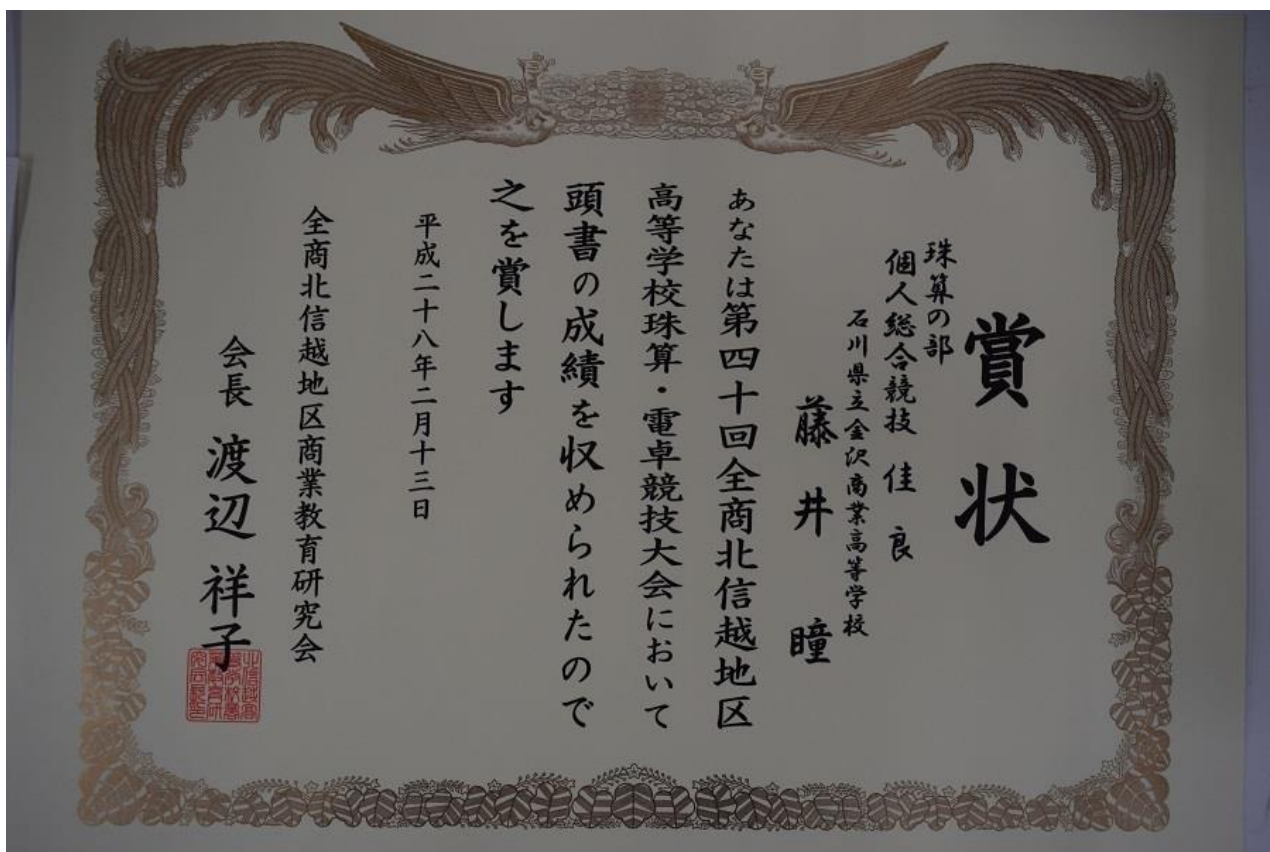 賞状
珠算の部
個人総合競技 佳良
石川県立金沢商業高等学校
藤井瞳
あなたは第四十回全商北信越地区
高等学校珠算・電卓競技大会において
頭書の成績を収められたので
之を賞します
平成二十八年二月十三日
全商北信越地区商業教育研究会
会長 渡辺祥子